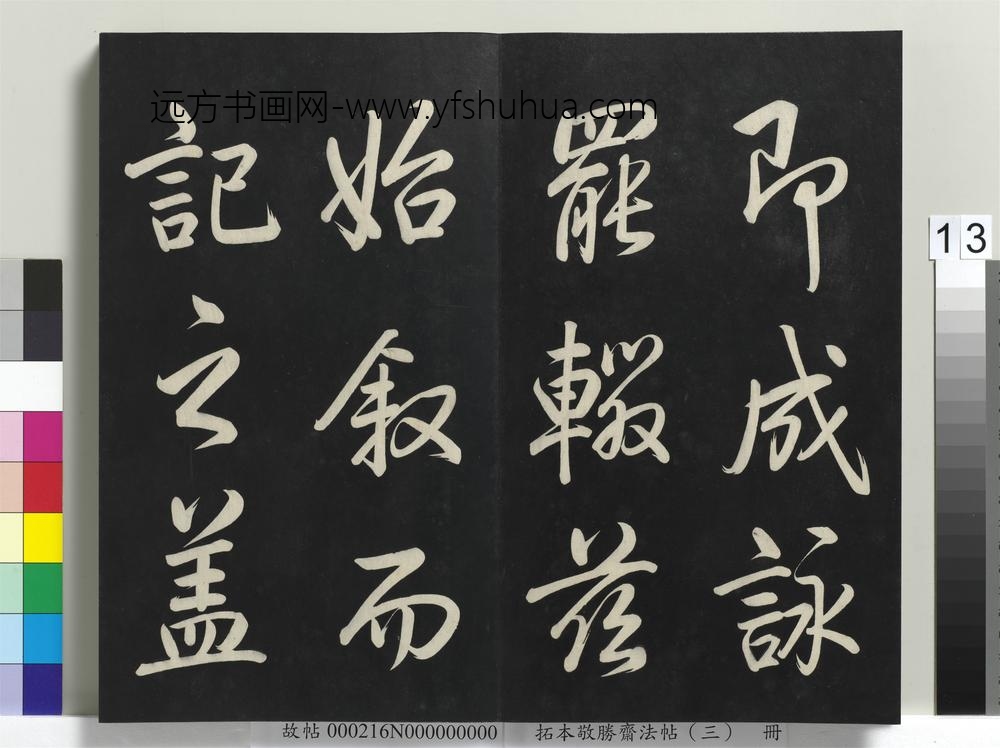 远方书画网-www.yfshuhua.com
即成詠
罷輟茲
始叙而
記之盖
13
故帖 000216N000000000 拓本敬勝齋法帖（三） 冊